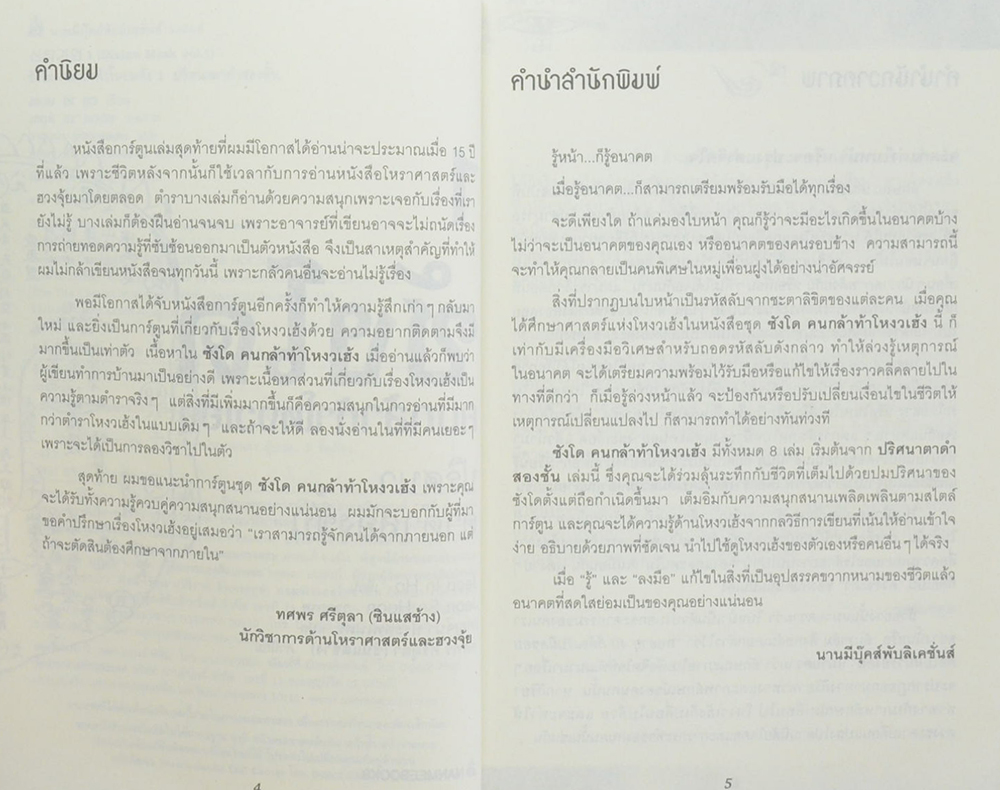 คำนิยม
หนังสือการ์ตูนเล่มสุดท้ายที่ผมมีโอกาสได้อ่านน่าจะประมาณเมื่อ 15 ปี
ที่แล้ว เพราะชีวิตหลังจากนั้นก็ใช้เวลากับการอ่านหนังสือโหราศาสตร์และ
ฮวงจุ้ยมาโดยตลอด ตำราบางเล่มก็อ่านด้วยความสุขเพราะเจอกับเรื่องที่เรา
ยังไม่รู้ บางเล่มก็ต้องฝืนอ่านจนจบ เพราะอาจารย์ที่เขียนอาจจะไม่ถนัดเรื่อง
การถ่ายทอดความรู้ที่ซับซ้อนออกมาเป็นตัวหนังสือ จึงเป็นสาเหตุสำคัญที่ทำให้
ผมไม่กล้าเขียนหนังสือจนทุกวันนี้ เพราะกลัวคนอื่นจะอ่านไม่รู้เรื่อง
พอมีโอกาสได้จับหนังสือการ์ตูนอีกครั้งก็ทำให้ความรู้สึกเก่าๆ กลับมา
ใหม่ และยิ่งเป็นการ์ตูนที่เกี่ยวกับเรื่องโหงวเฮ้งด้วย ความอยากติดตามจึงมี
มากขึ้นเป็นเท่าตัว เนื้อหาใน ซังโด คนกล้าท้าโหงวเฮ้ง เมื่ออ่านแล้วก็พบว่า
ผู้เขียนทำการบ้านมาเป็นอย่างดี เพราะเนื้อหาส่วนที่เกี่ยวกับเรื่องโหงวเฮ้งเป็น
ความรู้ตามตำราจริงๆ แต่สิ่งที่มีเพิ่มมากขึ้นก็คือความสนุกในการอ่านที่มีมาก
กว่าตำราโหงวเฮ้งในแบบเดิมๆ และถ้าจะให้ดี ลองนั่งอ่านในที่ที่มีคนเยอะๆ
เพราะจะได้เป็นการลองวิชาไปในตัว
สุดท้าย ผมขอแนะนำการ์ตูนชุด ซังโด คนกล้าท้าโหงวเฮ้ง เพราะคุณ
จะได้รับทั้งความรู้ควบคู่ความสนุกสนานอย่างแน่นอน ผมมักจะบอกกับผู้ที่มา
ขอคำปรึกษาเรื่องโหงวเฮ้งอยู่เสมอว่า "เราสามารถรู้จักคนได้จากภายนอก แต่
ถ้าจะตัดสินต้องศึกษาจากภายใน"
ทศพร ศรีตุลา (ซินแสช้าง)
นักวิชาการด้านโหราศาสตร์และฮวงจุ้ย
4
คำนำสำนักพิมพ์
รู้หน้า...ก็รู้อนาคต
เมื่อรู้อนาคต...ก็สามารถเตรียมพร้อมรับมือได้ทุกเรื่อง
จะดีเพียงใด ถ้าแค่มองใบหน้า คุณก็รู้ว่าจะมีอะไรเกิดขึ้นในอนาคตบ้าง
ไม่ว่าจะเป็นอนาคตของคุณเอง หรืออนาคตของคนรอบข้าง ความสามารถนี้
จะทำให้คุณกลายเป็นคนพิเศษในหมู่เพื่อนฝูงได้อย่างน่าอัศจรรย์
สิ่งที่ปรากฏบนใบหน้าเป็นรหัสลับจากชะตาลิขิตของแต่ละคน เมื่อคุณ
ได้ศึกษาศาสตร์แห่งโหงวเฮ้งในหนังสือชุด ซังโด คนกล้าท้าโหงวเฮ้ง นี้ ก็
เท่ากับมีเครื่องมือวิเศษสำหรับถอดรหัสลับดังกล่าว ทำให้ล่วงรู้เหตุการณ์
ในอนาคต จะได้เตรียมความพร้อมไว้รับมือหรือแก้ไขให้เรื่องราวคลี่คลายไปใน
ทางที่ดีกว่า ก็เมื่อรู้ล่วงหน้าแล้ว จะป้องกันหรือปรับเปลี่ยนเงื่อนไขในชีวิตให้
เหตุการณ์เปลี่ยนแปลงไป ก็สามารถทำได้อย่างทันท่วงที
ซังโด คนกล้าท้าโหงวเฮ้ง มีทั้งหมด 8 เล่ม เริ่มต้นจาก ปริศนาตาดำ
สองชั้น เล่มนี้ ซึ่งคุณจะได้ร่วมลุ้นระทึกกับชีวิตที่เต็มไปด้วยปมปริศนาของ
ซังโดตั้งแต่ถือกำเนิดขึ้นมา เต็มอิ่มกับความสนุกสนานเพลิดเพลินตามสไตล์
การ์ตูน และคุณจะได้ความรู้ด้านโหงวเฮ้งจากกลวิธีการเขียนที่เน้นให้อ่านเข้าใจ
ง่าย อธิบายด้วยภาพที่ชัดเจน นำไปใช้ดูโหงวเฮ้งของตัวเองหรือคนอื่นๆ ได้จริง
เมื่อ "รู้" และ "ลงมือ" แก้ไขในสิ่งที่เป็นอุปสรรคขวากหนามของชีวิตแล้ว
อนาคตที่สดใสย่อมเป็นของคุณอย่างแน่นอน
นานมีบุ๊คส์พับลิเคชั่นส์
5